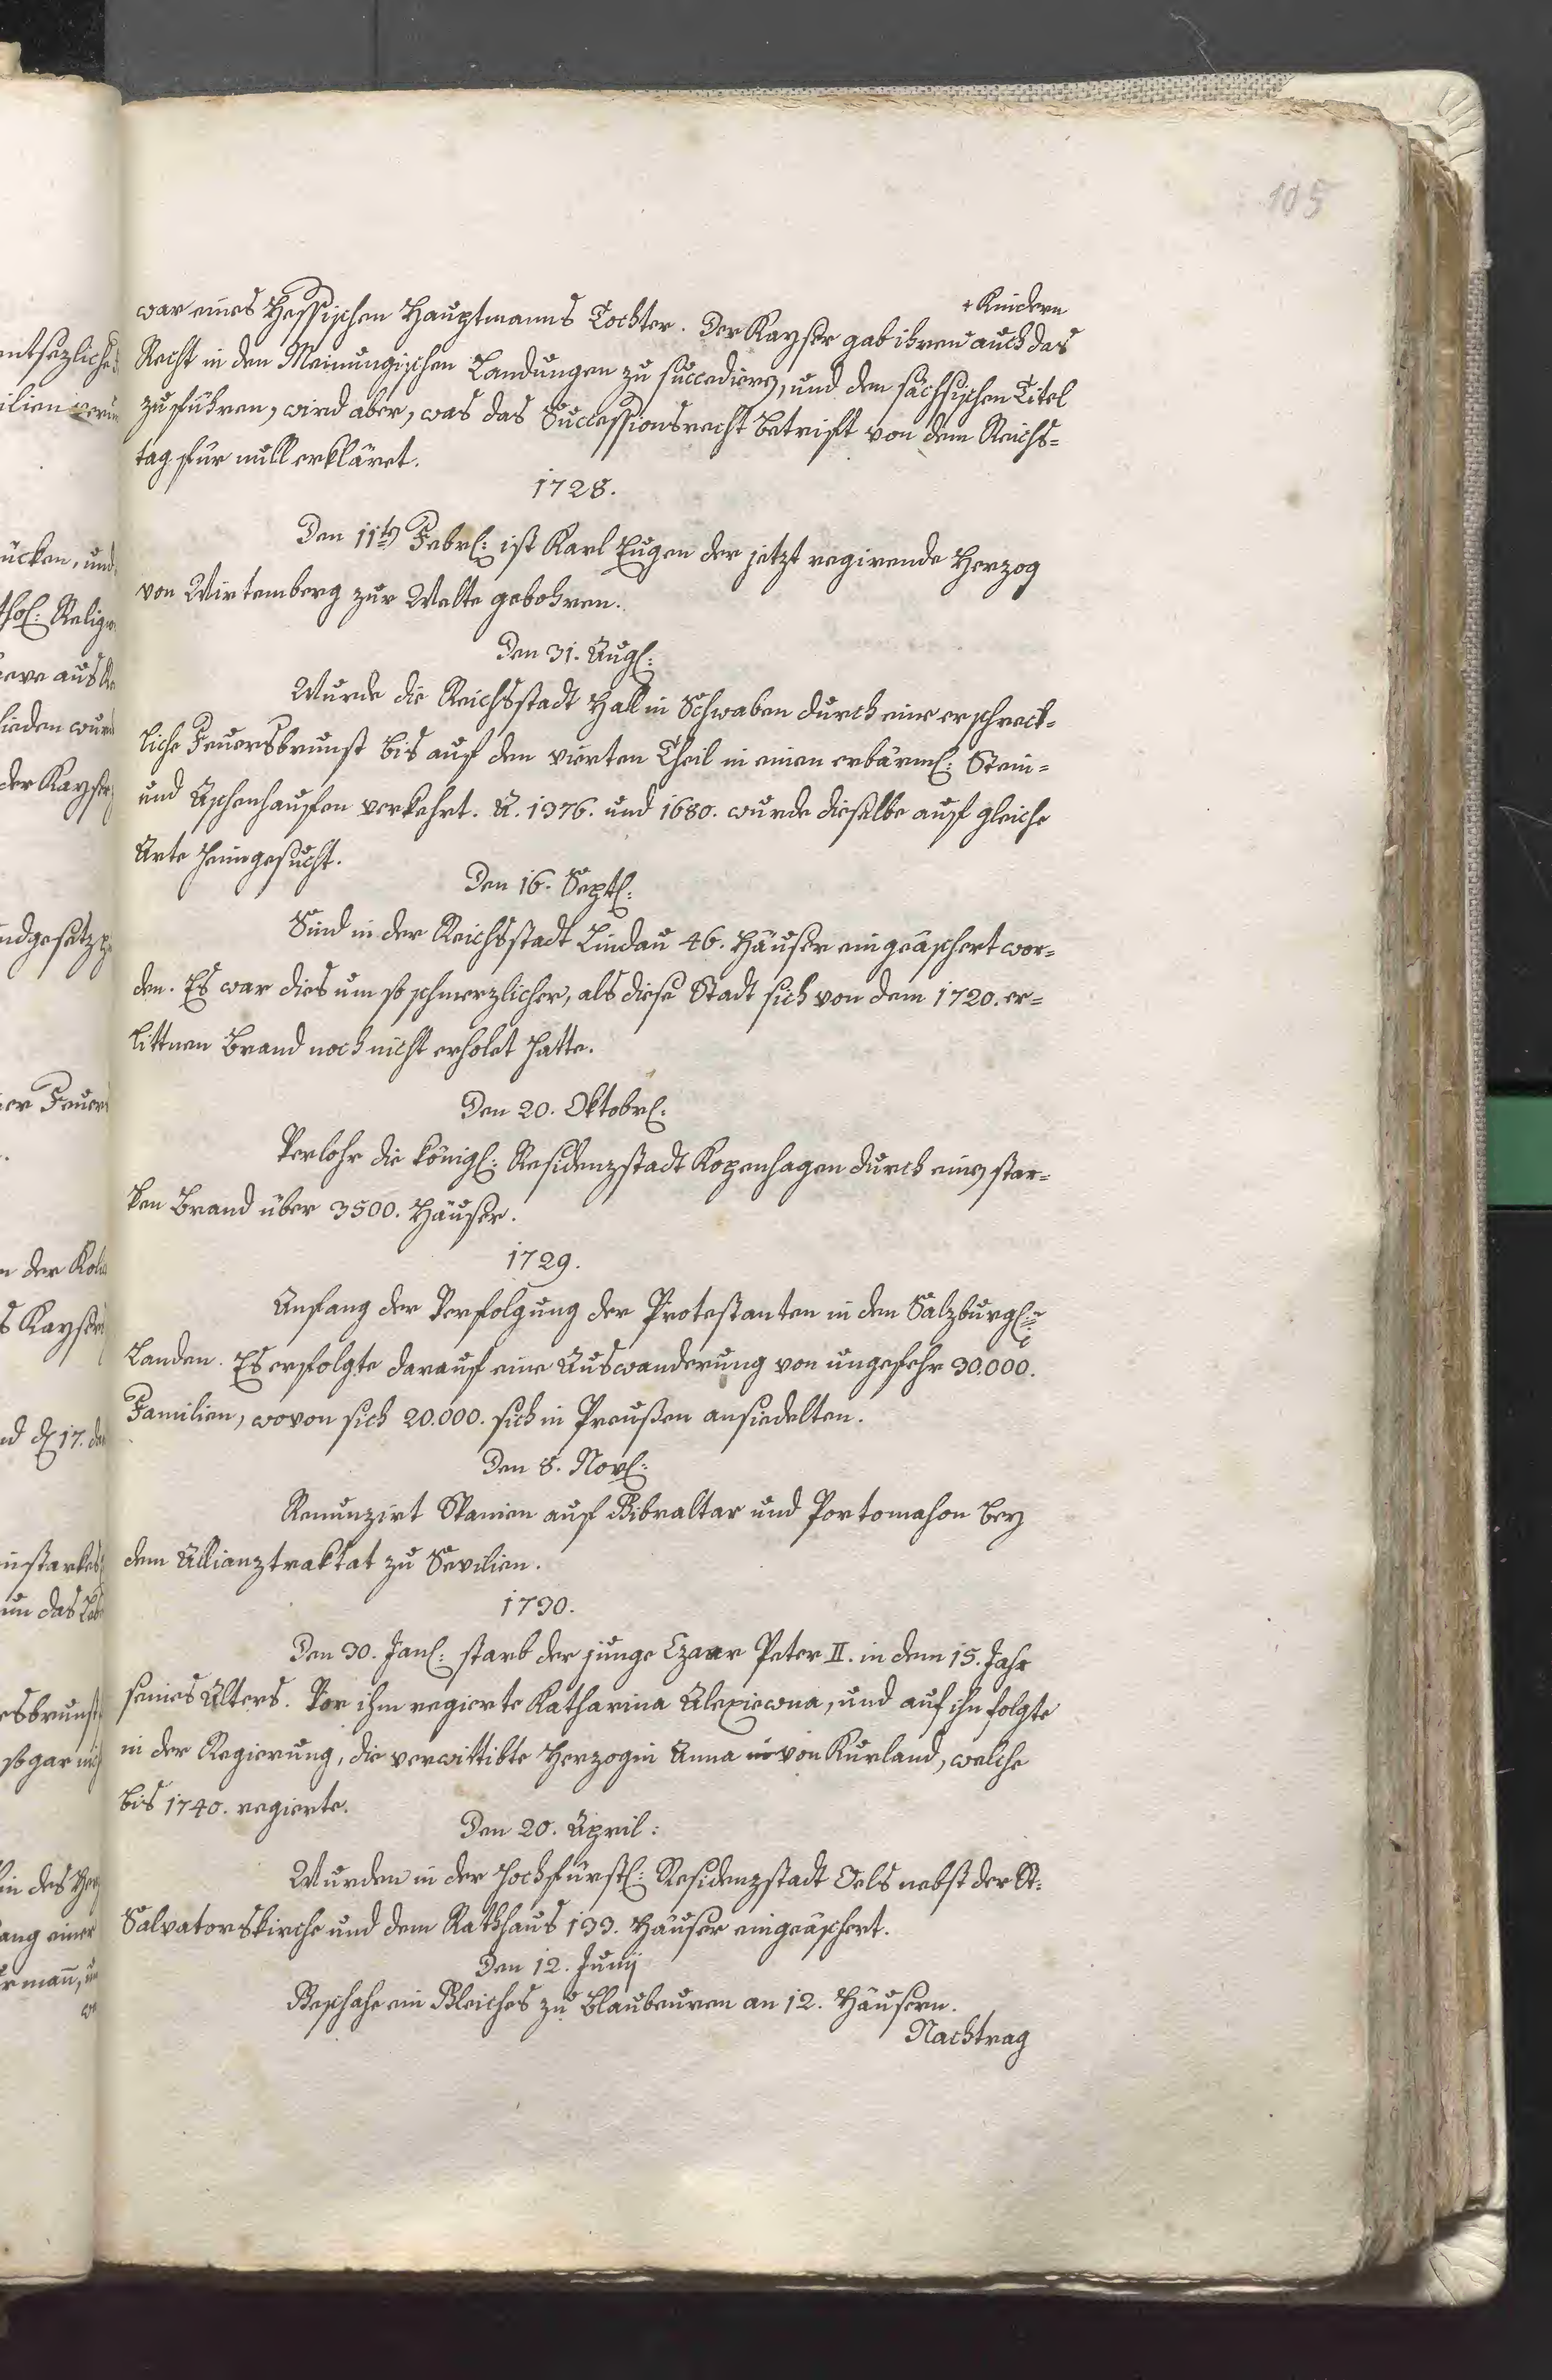 105
+ Kindern
war eines Hessischen Hauptmanns Tochter. Der Kayser gab ihren auch das
Recht in den Meinungischen Landungen zu succediren, und den sächsischen Titel
zu führen, wird aber, was das Successionsrecht betrift von dem Reichs=
tag für null erkläret.
1728.
Den 11ten Febr: ist Karl Eugen der jetzt regirende Herzog
von Wirtemberg zur Welte gebohren.
Den 31. Aug:
Wurde die Reichsstadt Hall in Schwaben durch eine erschreck=
liche Feuersbrunst bis auf den vierten Theil in einen erbärml: Stein=
und Aschenhaufen verkehrt. A. 1376. und 1680. wurde dieselbe auf gleiche
Arte heimgesucht.
Den 16. Sept:
Sind in der Reichsstadt Lindau 46. Häuser eingeäschert wor=
den. Es war dies um so schmerzlicher, als diese Stadt sich von dem 1720. er=
littnen Brand noch nicht erholet hatte.
Den 20. Oktobr:
Verlohr die königl: Residenzstadt Kopenhagen durch einen star=
ken Brand über 3500. Häuser.
1729.
Anfang der Verfolgung der Protestanten in den Salzburgl:
Landen. Es erfolgte darauf eine Auswanderung von ungefehr 30.000.
Familien, wovon sich 20.000. sich in Preußen ansiedelten.
Den 8. Nov:
Renunzirt Spanien auf Gibraltar und Portomahon bey
dem Allianztraktat zu Sevilien.
1730.
Den 30. Jan: starb der junge Czaar Peter II. in dem 15. Jahr
seines Alters. Vor ihm regierte Katharina Alexiewna, und auf ihn folgte
in der Regierung, die verwittibte Herzogin Anna in von Kurland, welche
bis 1740. regierte.
Den 20. April:
Wurden in der hochfürstl: Residenzstadt Oels nebst der St:
Salvatorskirche und dem Rathhaus 133. Häuser eingeäschert.
Den 12. Junij
Geschahe ein Gleiches zu Blaubeuren an 12. Häusern.
Nachtrag